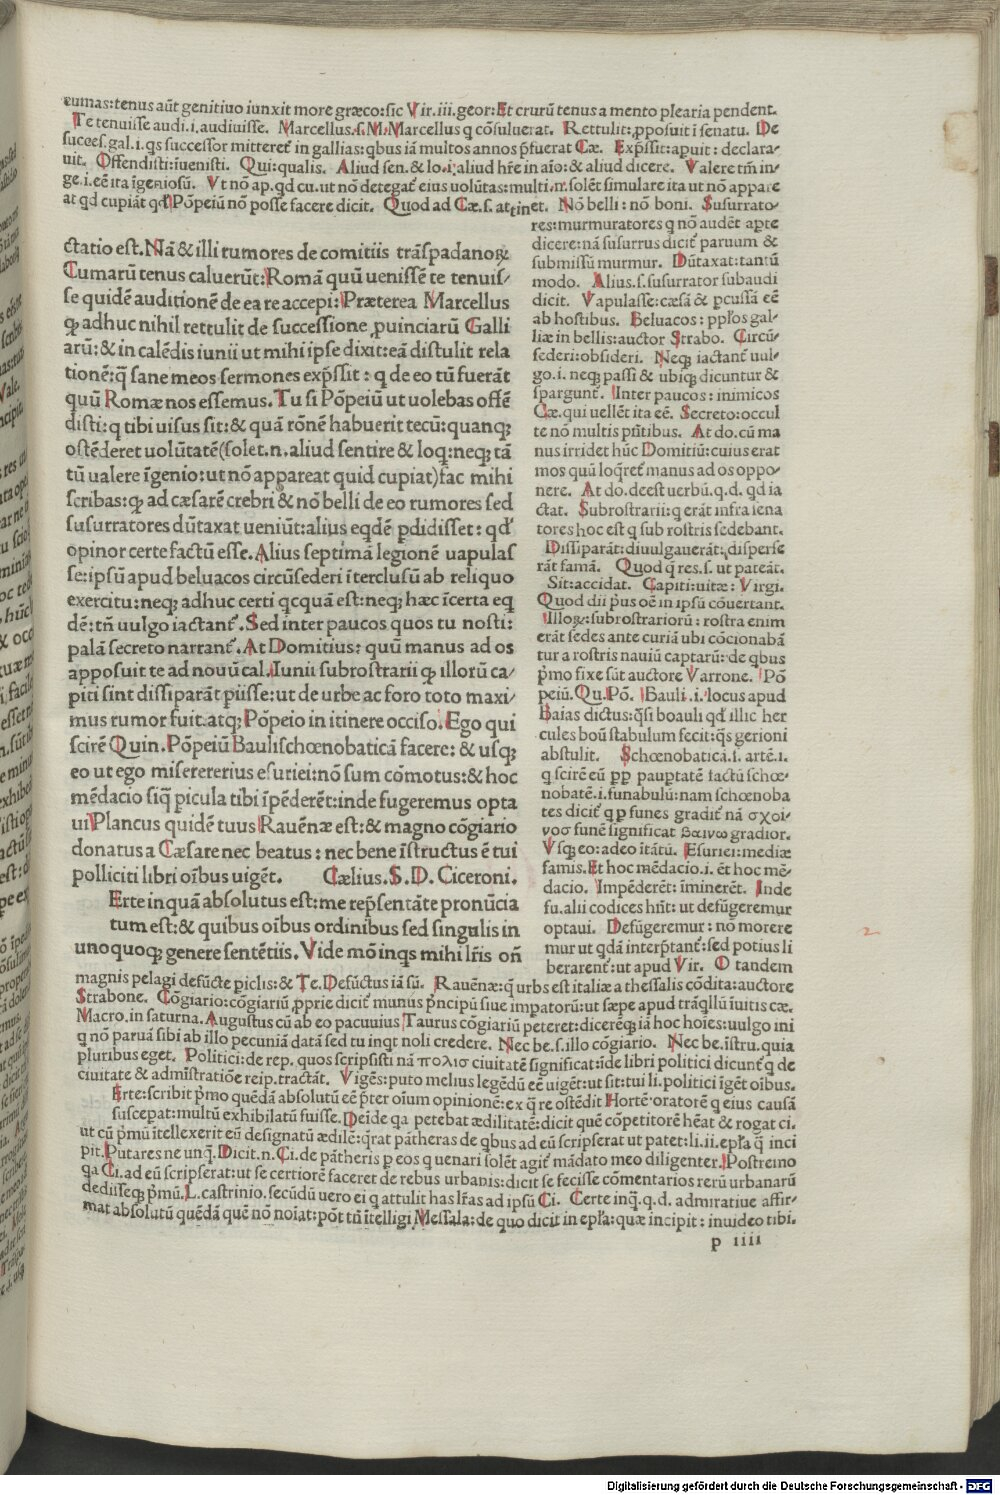 cumas:tenus aūt genitiuo iunxit more græco:sic Vir.iii.geor:Et crurū tenus a mento plearia pendent.
Te tenuisse audi.i.audiuisse. Marcellus.s.M.Marcellus q cōsuluerat. Rettulit:pposuit ī senatu. De
succes.gal.i.qs successor mitteret in gallias:qbus iā multos annos p̄fuerat Cæ. Exp̄ssit:apuit:declara-
uit. Offendisti:iuenisti. Qui:qualis. Aliud sen.& lo.i:aliud hr̄e in aīo:& aliud dicere. Valere tm̄ in-
ge.i.eē ita īgeniosū. Vt nō ap.qd cu.ut nō detegat̃ eius uolūtas:multi.n.solēt simulare ita ut nō appare
at qd cupiāt qd Pōpeiū nō posse facere dicit. Quod ad Cæ.s.attinet. Nō belli:nō boni. Susurrato-
res:murmuratores q nō audēt apte
dicere:nā susurrus dicit̃ paruum &
submissū murmur. Dūtaxat:tantū
modo. Alius.s.susurrator subaudi
dicit. Vapulasse:cæsā & pcussā eē
ab hostibus. Beluacos:pp̄los gal-
liæ in bellis:auctor Strabo. Circū-
sederi:obsideri. Neqꝫ iactant̃ uul-
go.i.neqꝫ passi & ubiqꝫ dicuntur &
spargunt̃. Inter paucos:inimicos
Cæ.qui uellēt ita eē. Secreto:occul
te nō multis pn̄tibus. At do.cū ma
nus irridet hūc Domitiū:cuius erat
mos quū loqret̃ manus ad os oppo-
nere. At do.deest uerbū.q.d.qd ia
ctat. Subrostrarii:q erāt infra iena
tores hoc est q sub rostris sedebant.
Dissiparāt:diuulgauerāt:disperse
rāt famā. Quod q̄ res.s.ut pateāt.
Sit:accidat. Capiti:uitæ:Virgi.
Quod dii p̄us oē in ipsū cōuertant.
Illoꝝ:subrostrariorū:rostra enim
erāt sedes ante curiā ubi cōcionabā
tur a rostris nauiū captarū:de qbus
p̄mo fixe sūt auctore Varrone. Pō
peiū.Qu.Pō. Bauli.i.locus apud
Baias dictus:q̄si boauli qd illic her
cules boū stabulum fecit:q̄s gerioni
abstulit. Schœnobaticā.i.artē.i.
q scirē eū pp pauptatē factū schœ-
nobatē.i.funabulū:nam schœnoba
tes dicit̃ q p funes gradit̃ nā σχοι-
νοσ funē significat βαινω gradior.
Vsqꝫ eo:adeo itātū. Esuriei:mediæ
famis.Et hoc mēdacio.i.et hoc mē-
dacio. Impēderēt:īminerēt. Inde
fu.alii codices hn̄t:ut defūgeremur
optaui. Defūgeremur:nō morere
mur ut qdā interp̄tant̃:sed potius li
berarent̃:ut apud Vir. O tandem
ctatio est.Nā & illi rumores de comitiis trāspadanoꝝ
Cumarū tenus caluerūt:Romā quū uenissē te tenuis-
se quidē auditionē de ea re accepi:Præterea Marcellus
qꝫ adhuc nihil rettulit de successione puinciarū Galli
arū:& in calēdis iunii ut mihi ipse dixit:eā distulit rela
tionē:q̄ sane meos sermones exp̄ssit:q de eo tū fuerāt
quū Romæ nos essemus.Tu si Pōpeiū ut uolebas offē
disti:q tibi uisus sit:& quā rōnē habuerit tecū:quanqꝫ
ostēderet uolūtatē(solet.n.aliud sentire & loq:neqꝫ tā
tū ualere īgenio:ut nō appareat quid cupiat)fac mihi
scribas:qꝫ ad cæsarē crebri & nō belli de eo rumores sed
susurratores dūtaxat ueniūt:alius eqdē pdidisset:qd
opinor certe factū esse.Alius septimā legionē uapulas
se:ipsū apud beluacos circūsederi īterclusū ab reliquo
exercitu:neqꝫ adhuc certi qcquā est:neqꝫ hæc īcerta eq
dē:tn̄ uulgo iactant̃.Sed inter paucos quos tu nosti:
palā secreto narrant̃.At Domitius:quū manus ad os
apposuit te ad nouū cal.Iunii subrostrarii qꝫ illorū ca-
piti sint dissiparāt piisse:ut de urbe ac foro toto maxi-
mus rumor fuit.atqꝫ Pōpeio in itinere occiso.Ego qui
scirē Quin.Pōpeiū Bauli schœnobaticā facere:& usqꝫ
eo ut ego misererer ius esuriei:nō sum cōmotus:& hoc
mēdacio siq̄ picula tibi īpēderēt:inde fugeremus opta
ui Plancus quidē tuus Rauēnæ est:& magno cōgiario
donatus a Cæsare nec beatus:nec bene īstructus ē tui
polliciti libri oībus uigēt. Cælius.S.D.Ciceroni.
Erte inquā absolutus est:me rep̄sentāte pronūcia
tum est:& quibus oībus ordinibus sed singulis in
unoquoqꝫ genere sentētiis.Vide mō inqs mihi lr̄is on̄
magnis pelagi defūcte piclis:& Te.Defūctus iā sū. Rauēnæ:q̄ urbs est italiæ a thessalis cōdita:auctore
Strabone. Cōgiario:cōgiariū pprie dicit̃ munus p̄ncipū siue impatorū:ut sæpe apud trāqllū īuitis cæ.
Macro.in saturna.Augustus cū ab eo pacuuius Taurus cōgiariū peteret:diceretqꝫ iā hoc hoīes:uulgo ini
q nō paruā sibi ab illo pecuniā datā sed tu inqt noli credere. Nec be.s.illo cōgiario. Nec be.īstru.quia
pluribus eget. Politici:de rep.quos scripsisti nā πολισ ciuitatē significat:īde libri politici dicunt̃ q de
ciuitate & admīstratiōe reip.tractāt. Vigēs:puto melius legēdū eē uigēt:ut sit:tui li.politici īgēt oībus.
Erte:scribit p̄mo quēdā absolutū eē p̄ter oium opinionē:ex q̄ re ostēdit Hortē.oratorē q eius causā
susceperat:multū exhibilatū fuisse.Deīde qa petebat ædilitatē:dicit quē cōpetitorē hēat & rogat ci.
ut cū p̄mū ītellexerit eū designatū ædilē:q̄rat pātheras de qbus ad eū scripserat ut patet:li.ii.epl̄a q̄ inci
pit.Putares ne unq̄.Dicit.n.Ci.de pātheris p eos q uenari solēt agit̃ mādato meo diligenter.Postremo
qa Ci.ad eū scripserat:ut se certiorē faceret de rebus urbanis:dicit se fecisse cōmentarios rerū urbanarū
dedisseqꝫ p̄mū.L.castrinio.secūdū uero ei q attulit has lr̄as ad ipsū Ci. Certe inq̄.q.d.admiratiue affir-
mat absolutū quēdā quē nō noiat:pōt tn̄ ītelligi Messala:de quo dicit in epl̄a:quæ incipit:inuideo tibi.
p iiii
2
Digitalisierung gefördert durch die Deutsche Forschungsgemeinschaft - DFG